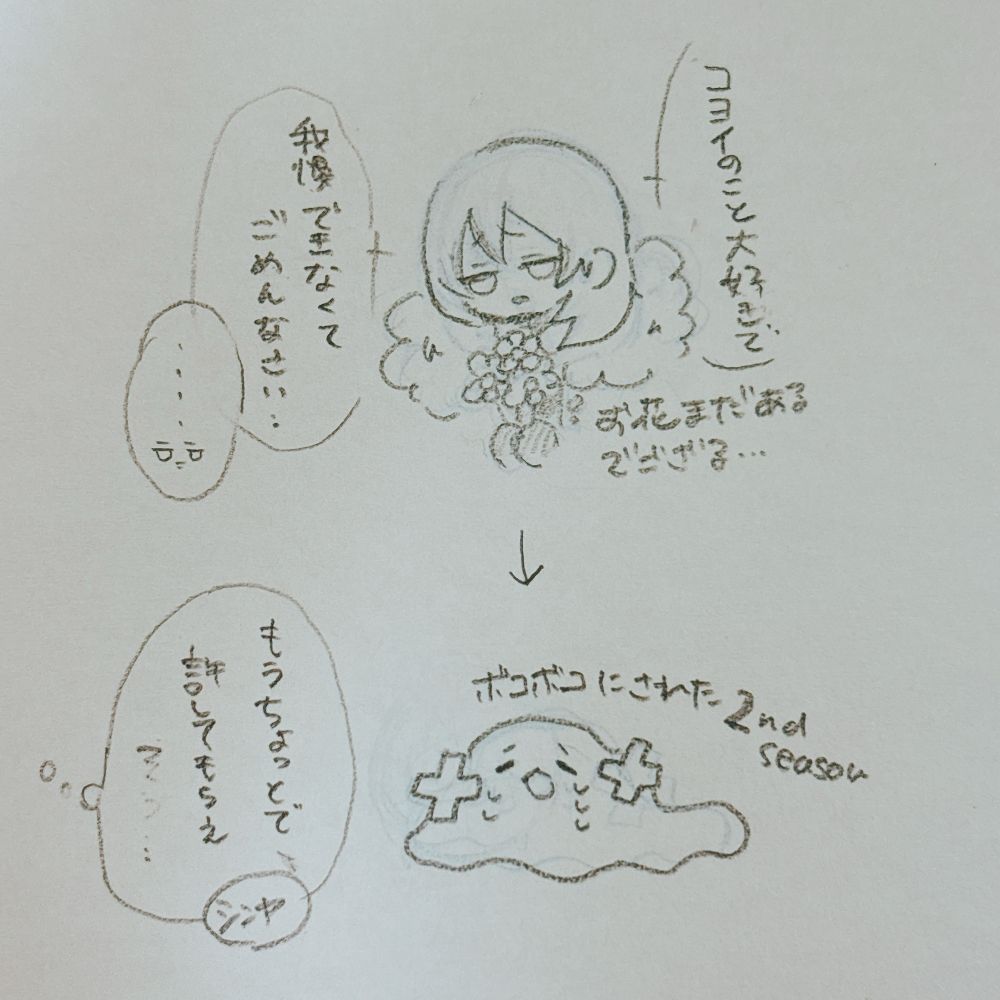 コヨイのこと大好きで
我慢できなくて
ごめんなさい…
お花まだある
でござる…
ボコボコにされた2nd
season
もうちょっとで
許してもらえ
そう…
シンヤ